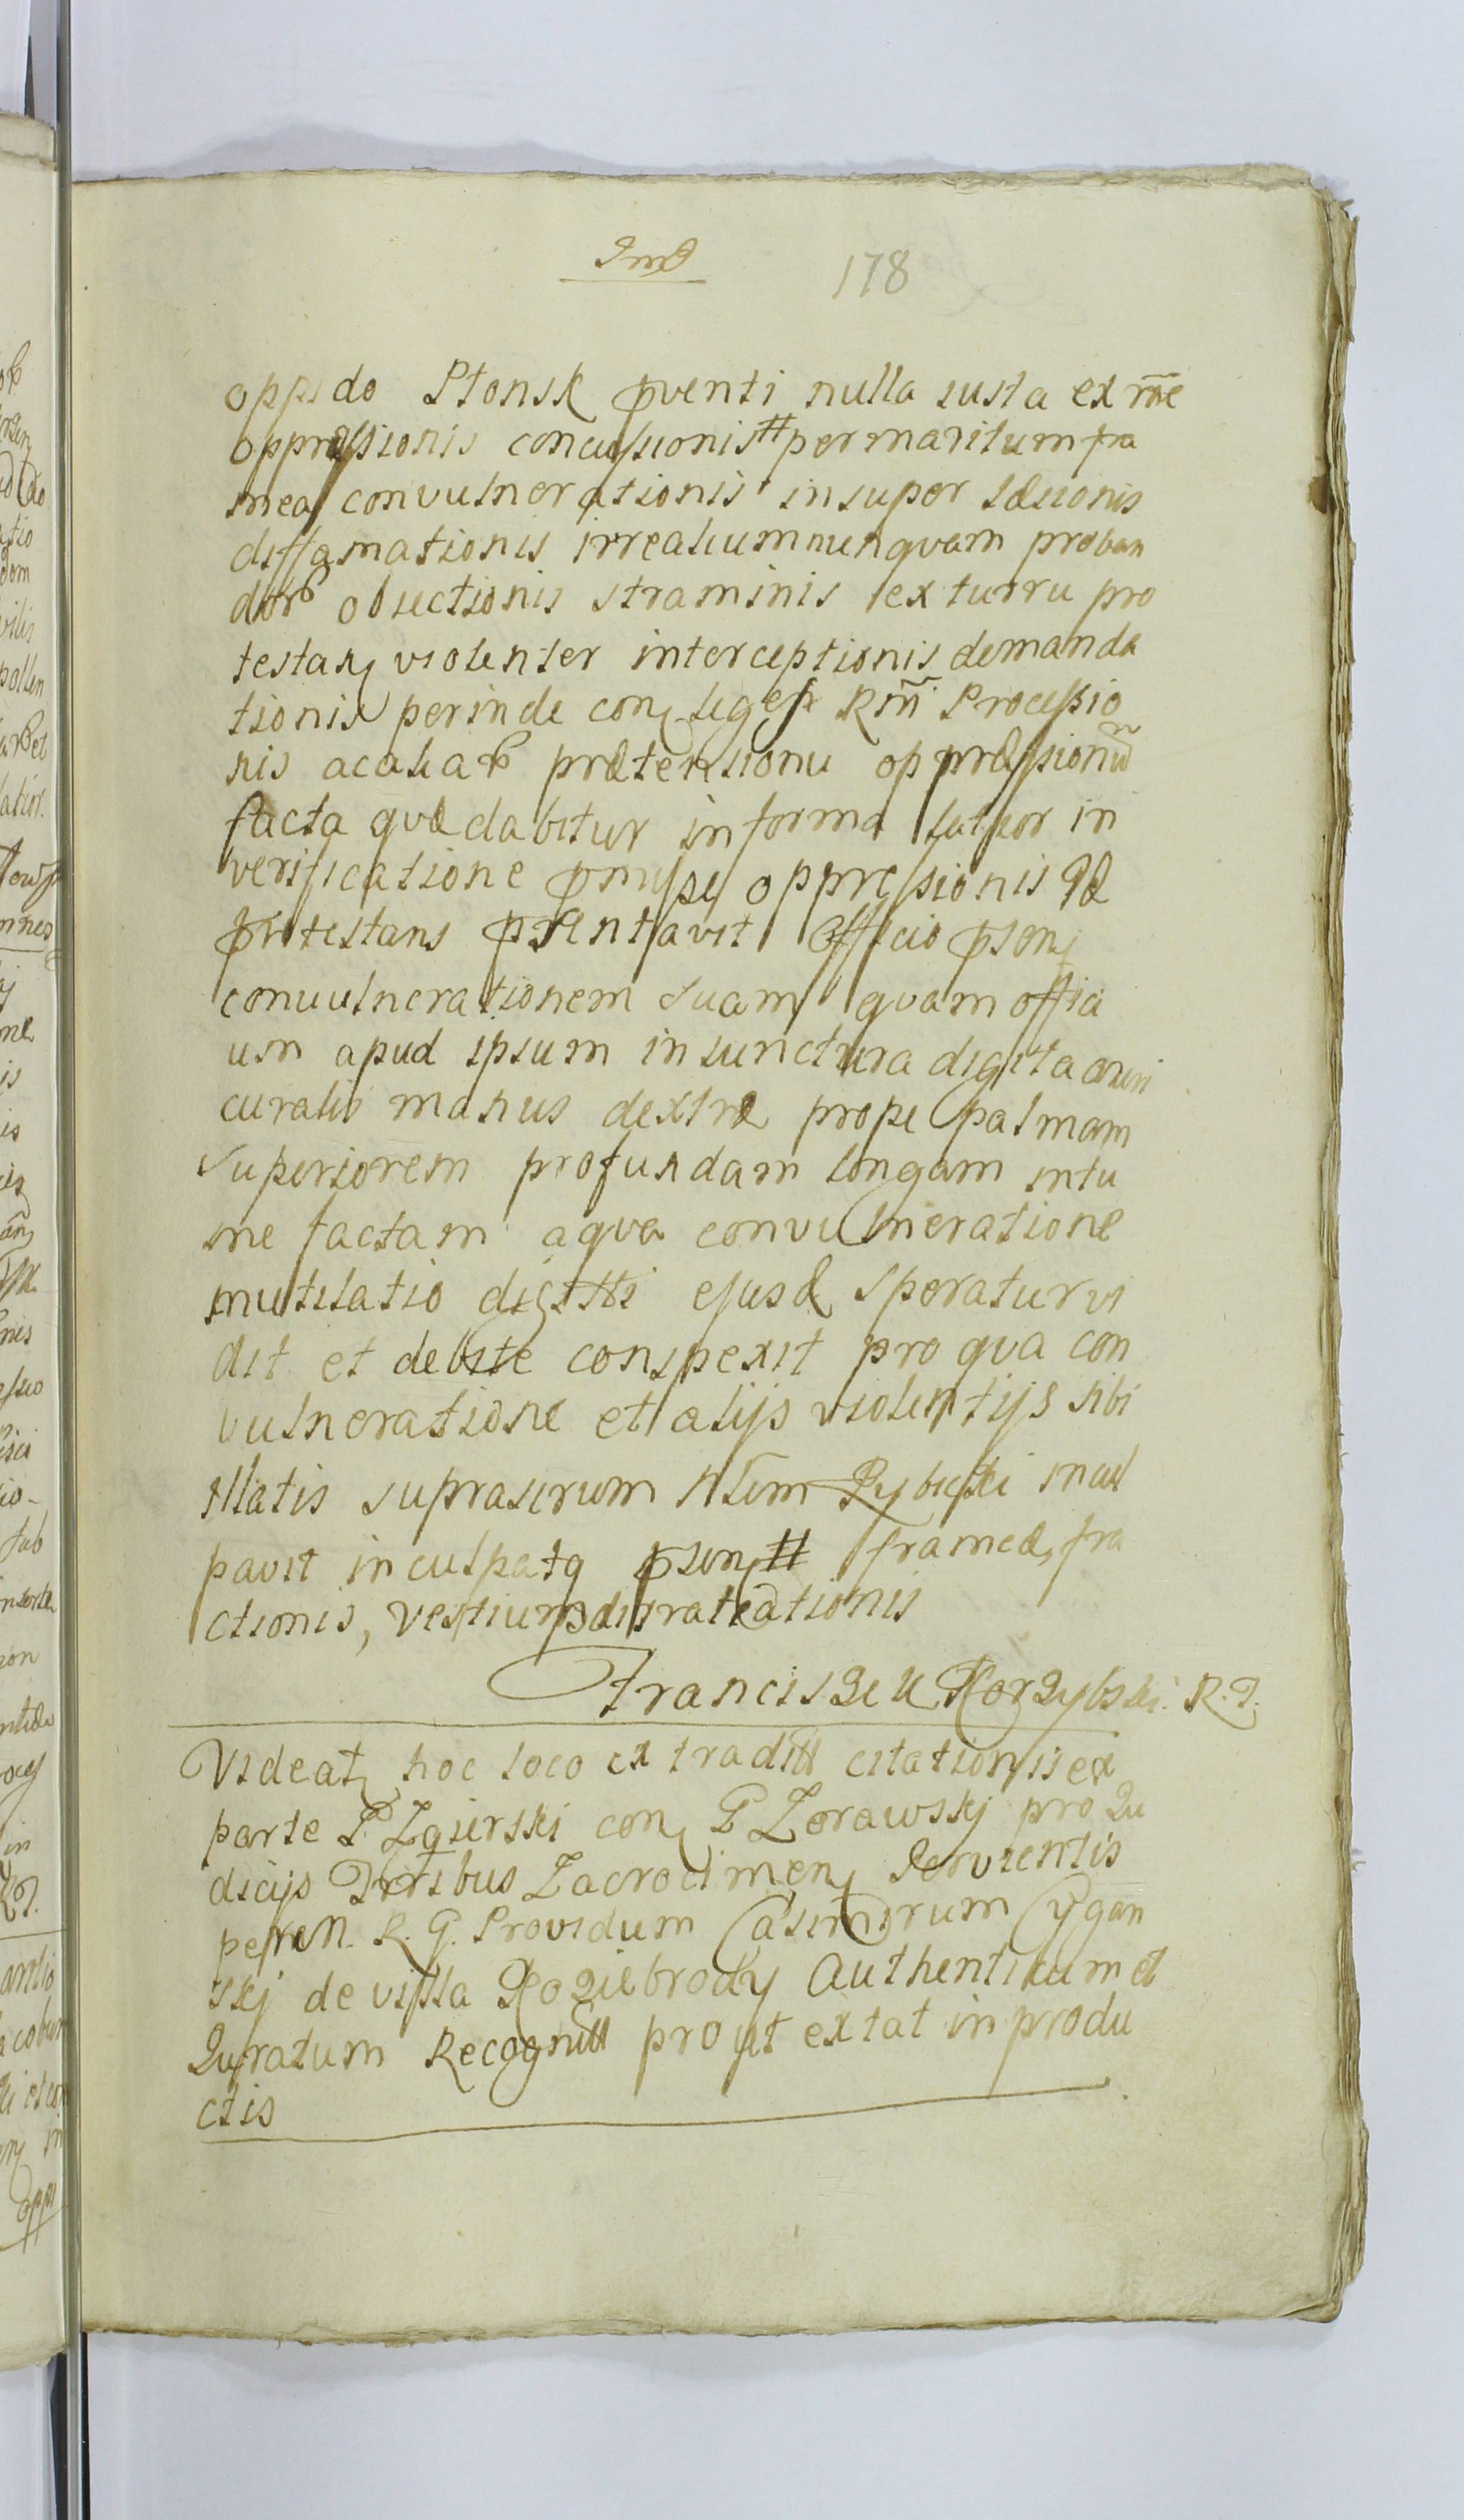 Imd 178
oppido Płonsk pventi nulla iusta ex rõe
oppræssionis concussionis # per maritum fra
mea convulnerationis insuper læsionis
diffamationis irrealium nunquam proban
dor obiectionis straminis ex turru pro
testan violenter interceptionis demanda
tionis perinde con leges Rñi Processio
nis acaliar prætensionu oppræssionũ
facta quæ dabitur in forma latior in
verificatione pmissæ oppressionis Id
protestans psentavit officio psens
convulnerationem suam quam offici
um apud ipsum in iunctura digita auri
curalis manus dextræ prope palmam
superiorem profundam longam intu
me factam a qua convulneratione
mutilatio digitti ejusd speratur vi
dit et debite conspexit pro qua con
vulneratione et alijs violentijs sibi
illatis suprascrum Rybicki incul
pavit inculpatq psens # frameæ, fra
ctionis, vestium dilaterationis
Franciszek Korzybski R.P.
Videatr hoc loco extraditt citationis ex
parte P. Zgierski con P Zorawskj pro Iu
dicijs Trrlibus Zacrocimen servientis
per M. R. G. Providum Casimirum Cygan
skj de villa Koziebrody Authenticum et
Iuratum Recognitt prout extat in produ
ctis